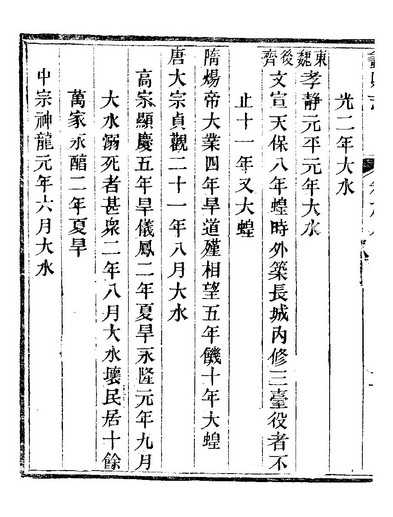 光二年大水
東魏孝静元平元年大水
後齊文宣天保八年蝗時外築長城內修三臺役者不
止十一年又大蝗
隋煬帝大業四年旱道殣相望五年饑十年大蝗
唐大宗貞觀二十一年八月大水
高宗顯慶五年旱儀鳳二年夏旱永隆元年九月
大水溺死者甚衆二年八月大水壞民居十餘
萬家永醕二年夏旱
中宗神龍元年六月大水